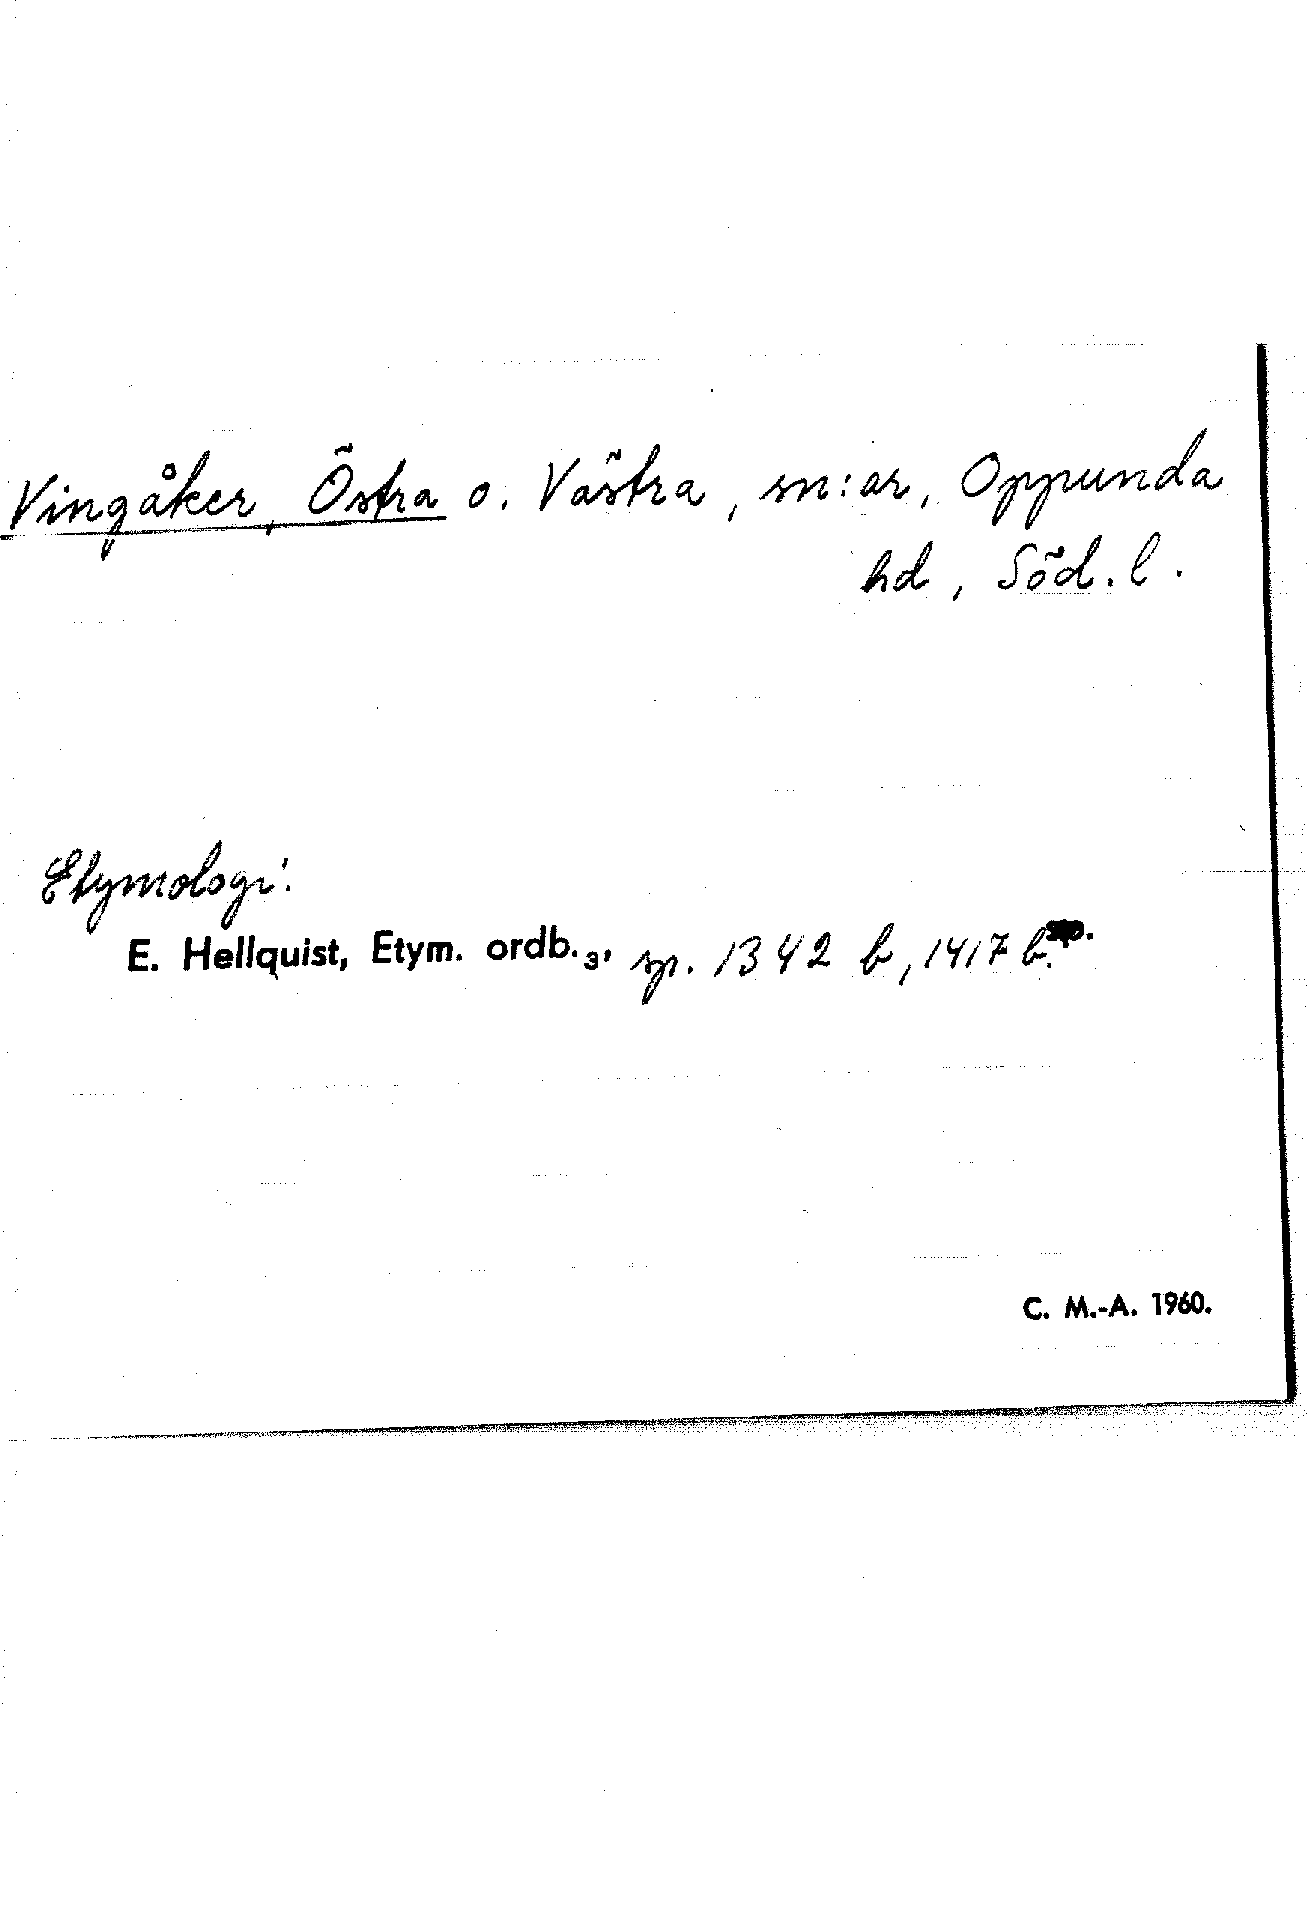 Vingåker, Östra o. Västra, sn:ar, Oppunda
hd, Söd. l.
Etymologi:
E. Hellquist, Etym. ordb.3, sp. 1342 b, 1417 b.
C. M.-A. 1960.